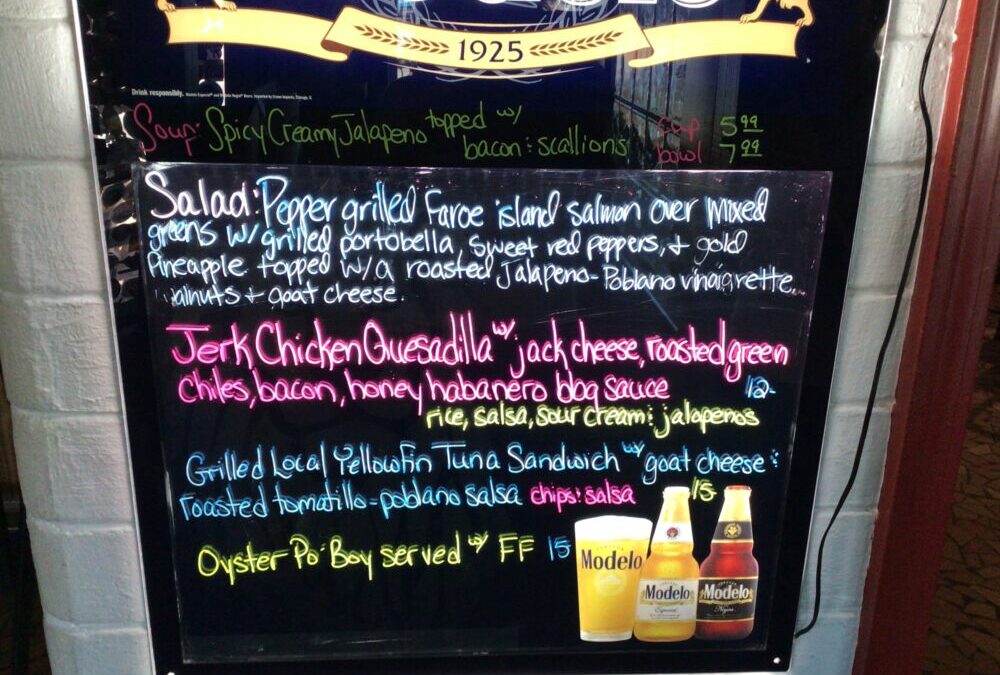 1925
Drink responsibly.
Soup: Spicy Creamy Jalapeno topped w/
bacon & scallions
cup 5.99
bowl 7.99
Salad: Pepper grilled Faroe island salmon over mixed
greens w/ grilled portobella, sweet red peppers, + gold
pineapple topped w/a roasted Jalapeno-Poblano vinaigrette..
walnuts + goat cheese.
Jerk Chicken Quesadilla w/ jack cheese, roasted green
chiles, bacon, honey habanero bbq sauce 12-
rice, salsa, sour cream & jalapenos
Grilled Local Yellowfin Tuna Sandwich w/ goat cheese &
roasted tomatillo-poblano salsa chips & salsa 15-
Oyster Po-Boy served w/ FF 15
Modelo
Modelo
Especial
Modelo
Negra